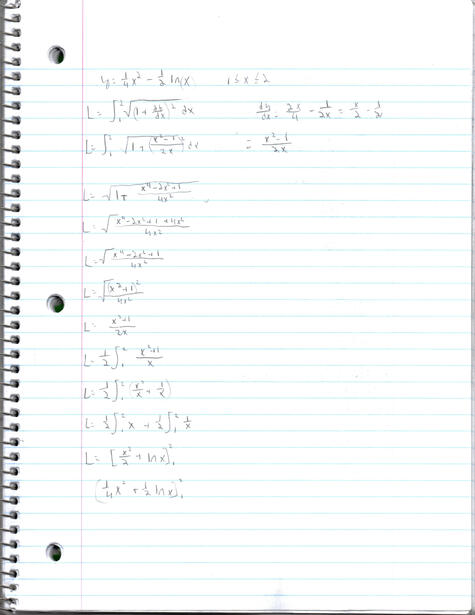 y = 1/4 x² - 1/2 ln(x)    1 ≤ x ≤ 2
L = ∫₁² √(1 + dy/dx)² dx    dy/dx = 2x/4 - 1/2x = x/2 - 1/2
L = ∫₁² √1 + (x²-1/2x)² dx    = x²-1/2x
L = √1 + x⁴-2x²+1/4x²
L = √x⁴-2x²+1+4x²/4x²
L = √x⁴+2x²+1/4x²
L = √(x²+1)²/4x²
L = x²+1/2x
L = 1/2 ∫₁² x²+1/x
L = 1/2 ∫₁² (x²/x + 1/x)
L = 1/2 ∫₁² x + 1/2 ∫₁² 1/x
L = [x²/2 + ln x]₁²
(1/4 x² + 1/2 ln x]₁²